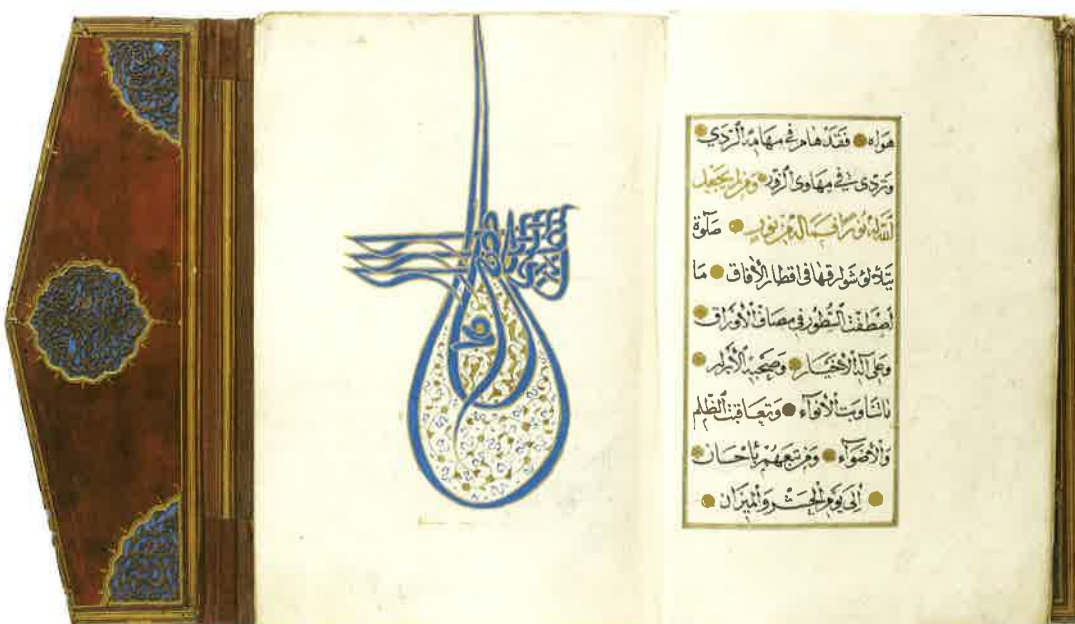 هواه فقد هام في مهامه الردي
وتردى في مهاوى الزور ومن لم يجعل
الله له نورا فما له من نور صلوة
يتلألؤ شوارقها في اقطار الأفاق ما
اصطفت السطور في مصاف الأوراق
وعلى آله الأخيار وصحبه الأبرار
ما تناوبت الأنوآء وتعاقبت الظلم
والأضوآء ومن تبعهم بإحسان
إلى يوم الحشر والميزان